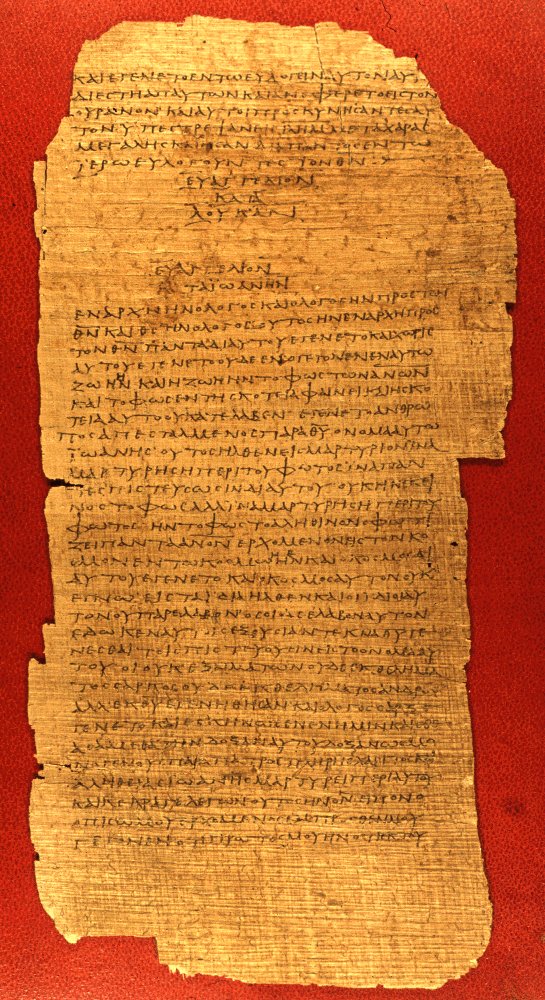 ΚΑΙΕΓΕΝΕΤΟΕΝΤΩΕΥΛΟΓΕΙΝΑΥΤΟΝΑΥΤ
ΔΙΕϹΤΗΑΠΑΥΤΩΝΚΑΙΑΝΕΦΕΡΕΤΟΕΙϹΤΟΝ
ΟΥΡΑΝΟΝΚΑΙΑΥΤΟΙΠΡΟϹΚΥΝΗϹΑΝΤΕϹΑΥ
ΤΟΝΥΠΕϹΤΡΕΨΑΝΕΙϹΙΗΛΜΜΕΤΑΧΑΡΑϹ
ΜΕΓΑΛΗϹΚΑΙΗϹΑΝΔΙΑΠΑΝΤΟϹΕΝΤΩ
ΙΕΡΩΕΥΛΟΓΟΥΝΤΕϹΤΟΝΘΝ
ΕΥΑΓΓΕΛΙΟΝ
ΚΑΤΑ
ΛΟΥΚΑΝ
ΕΥΑΓΓΕΛΙΟΝ
ΚΑΤΑΙΩΑΝΗΝ
ΕΝΑΡΧΗΗΝΟΛΟΓΟϹΚΑΙΟΛΟΓΟϹΗΝΠΡΟϹΤΟΝ
ΘΝΚΑΙΘϹΗΝΟΛΟΓΟϹΟΥΤΟϹΗΝΕΝΑΡΧΗΠΡΟϹ
ΤΟΝΘΝΠΑΝΤΑΔΙΑΥΤΟΥΕΓΕΝΕΤΟΚΑΙΧΩΡΙϹ
ΑΥΤΟΥΕΓΕΝΕΤΟΟΥΔΕΕΝΟΓΕΓΟΝΕΝΕΝΑΥΤΩ
ΖΩΗΗΝΚΑΙΗΖΩΗΗΝΤΟΦΩϹΤΩΝΑΝΩΝ
ΚΑΙΤΟΦΩϹΕΝΤΗϹΚΟΤΕΙΑΦΑΙΝΕΙΚΑΙΗϹΚΟ
ΤΕΙΑΑΥΤΟΟΥΚΑΤΕΛΑΒΕΝΕΓΕΝΕΤΟΑΝΘΡΩ
ΠΟϹΑΠΕϹΤΑΛΜΕΝΟϹΠΑΡΑΘΥΟΝΟΜΑΑΥΤΩ
ΙΩΑΝΗϹΟΥΤΟϹΗΛΘΕΝΕΙϹΜΑΡΤΥΡΙΟΝΙΝΑ
ΜΑΡΤΥΡΗϹΗΠΕΡΙΤΟΥΦΩΤΟϹΙΝΑΠΑΝ
ΤΕϹΠΙϹΤΕΥϹΩϹΙΝΔΙΑΥΤΟΥΟΥΚΗΝΕΚΕΙ
ΝΟϹΤΟΦΩϹΑΛΛΙΝΑΜΑΡΤΥΡΗϹΗΠΕΡΙΤΟΥ
ΦΩΤΟϹΗΝΤΟΦΩϹΤΟΑΛΗΘΙΝΟΝΟΦΩΤΙ
ΖΕΙΠΑΝΤΑΑΝΟΝΕΡΧΟΜΕΝΟΝΕΙϹΤΟΝΚΟ
ϹΜΟΝΕΝΤΩΚΟϹΜΩΗΝΚΑΙΟΚΟϹΜΟϹΔΙ
ΑΥΤΟΥΕΓΕΝΕΤΟΚΑΙΟΚΟϹΜΟϹΑΥΤΟΝΟΥΚ
ΕΓΝΩΕΙϹΤΑΙΔΙΑΗΛΘΕΝΚΑΙΟΙΙΔΙΟΙΑΥ
ΤΟΝΟΥΠΑΡΕΛΑΒΟΝΟϹΟΙΔΕΕΛΑΒΟΝΑΥΤΟΝ
ΕΔΩΚΕΝΑΥΤΟΙϹΕΞΟΥϹΙΑΝΤΕΚΝΑΘΥΓΕ
ΝΕϹΘΑΙΤΟΙϹΠΙϹΤΕΥΟΥϹΙΝΕΙϹΤΟΟΝΟΜΑΑΥ
ΤΟΥΟΙΟΥΚΕΞΑΙΜΑΤΩΝΟΥΔΕΕΚΘΕΛΗΜΑ
ΤΟϹϹΑΡΚΟϹΟΥΔΕΕΚΘΕΛΗΜΑΤΟϹΑΝΔΡΟϹ
ΑΛΛΕΚΘΥΕΓΕΝΗΘΗϹΑΝΚΑΙΟΛΟΓΟϹϹΑΡΞΕ
ΓΕΝΕΤΟΚΑΙΕϹΚΗΝΩϹΕΝΕΝΗΜΙΝΚΑΙΕΘΕ
ΑϹΑΜΕΘΑΤΗΝΔΟΞΑΝΑΥΤΟΥΔΟΞΑΝΩϹΜΟ
ΝΟΓΕΝΟΥϹΠΑΡΑΠΑΤΡΟϹΠΛΗΡΗϹΧΑΡΙΤΟϹΚΑΙ
ΑΛΗΘΕΙΑϹΙΩΑΝΗϹΜΑΡΤΥΡΕΙΠΕΡΙΑΥΤΟΥ
ΚΑΙΚΕΚΡΑΓΕΛΕΓΩΝΟΥΤΟϹΗΝΟΝΕΙΠΟΝΟ
ΟΠΙϹΩΜΟΥΕΡΧΟΜΕΝΟϹΕΜΠΡΟϹΘΕΝΜΟΥ
ΓΕΓΟΝΕΝΟΤΙΠΡΩΤΟϹΜΟΥΗΝΟΤΙΕΚΤΟΥ